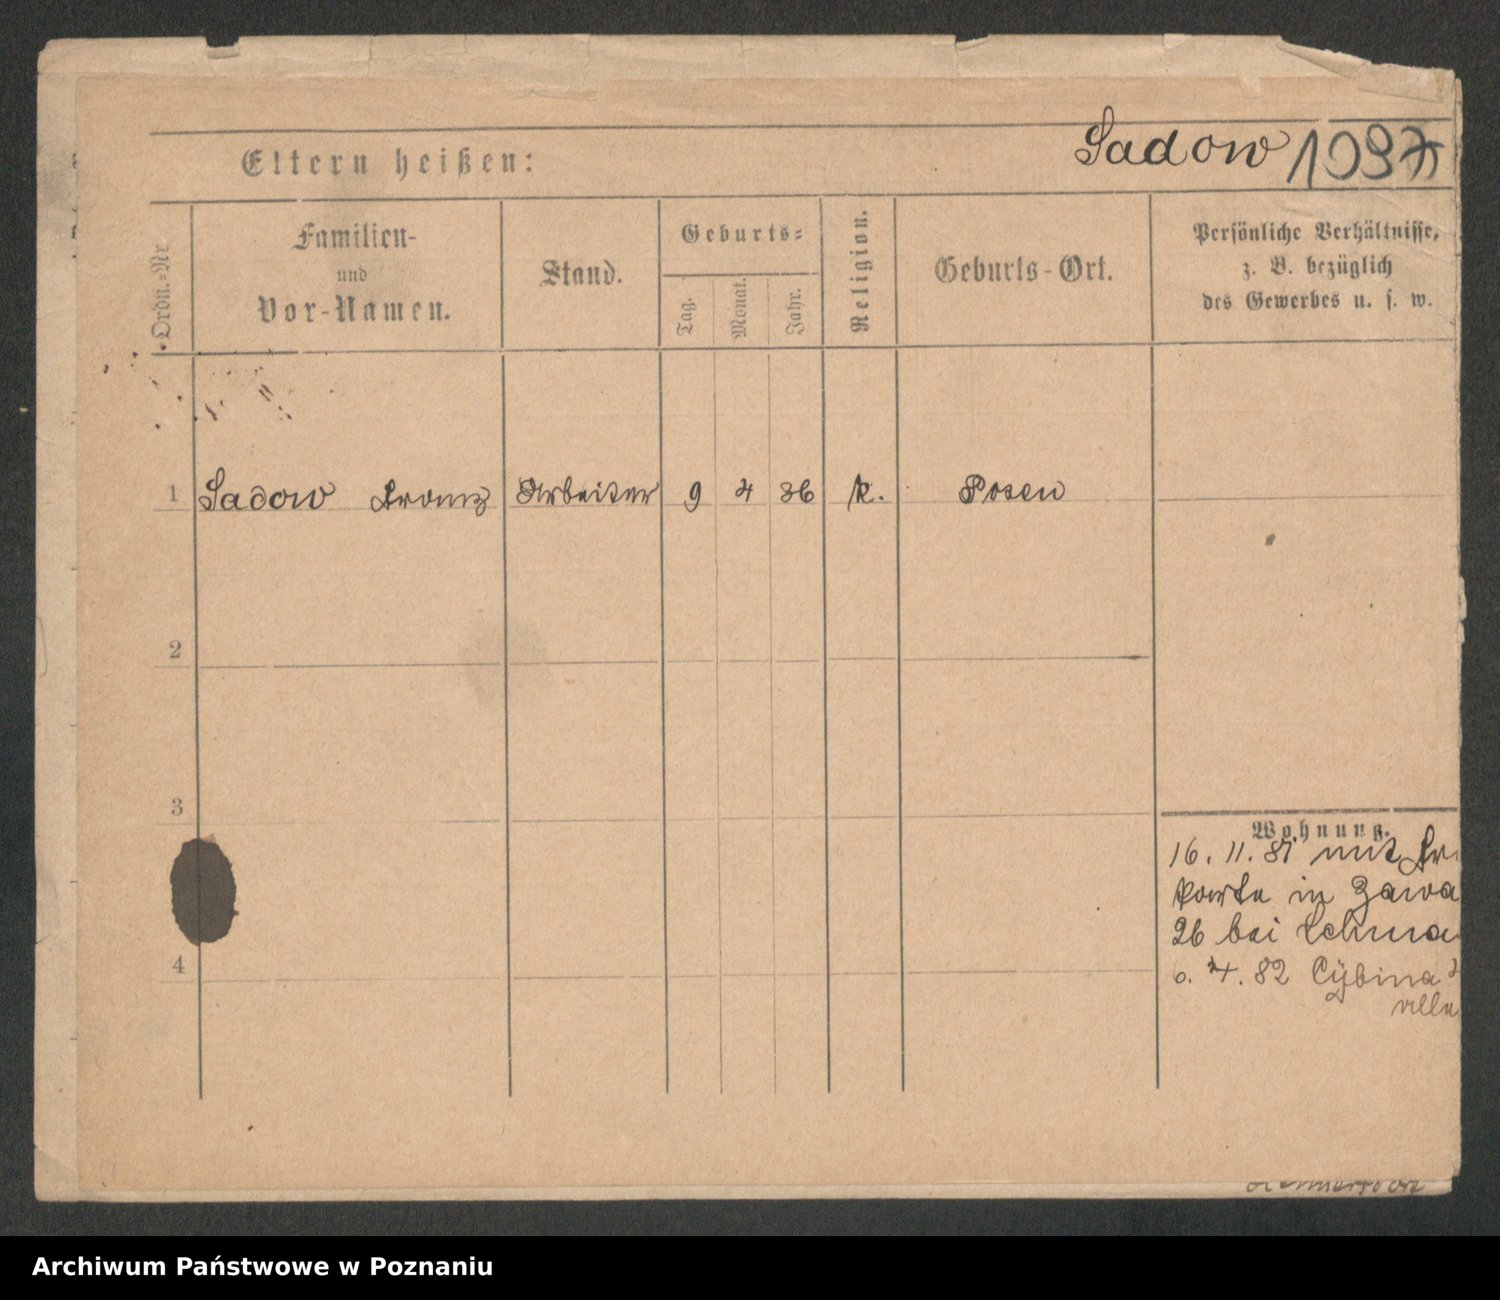 Sadow 1097
Eltern heißen:
Ordn.-Nr
Familien-
und
Vor-Namen.
Stand.
Geburts-
Tag.
Monat.
Jahr.
Religion.
Geburts-Ort.
Persönliche Verhältnisse,
z. B. bezüglich
des Gewerbes u. s. w.
1 Sadow Franz Arbeiter 9 4 36 k. Posen
2
3
Wohnung.
16. 11. 81 mit
in Zawa
26 bei
4
4. 82 Cybina
ville
Archiwum Państwowe w Poznaniu